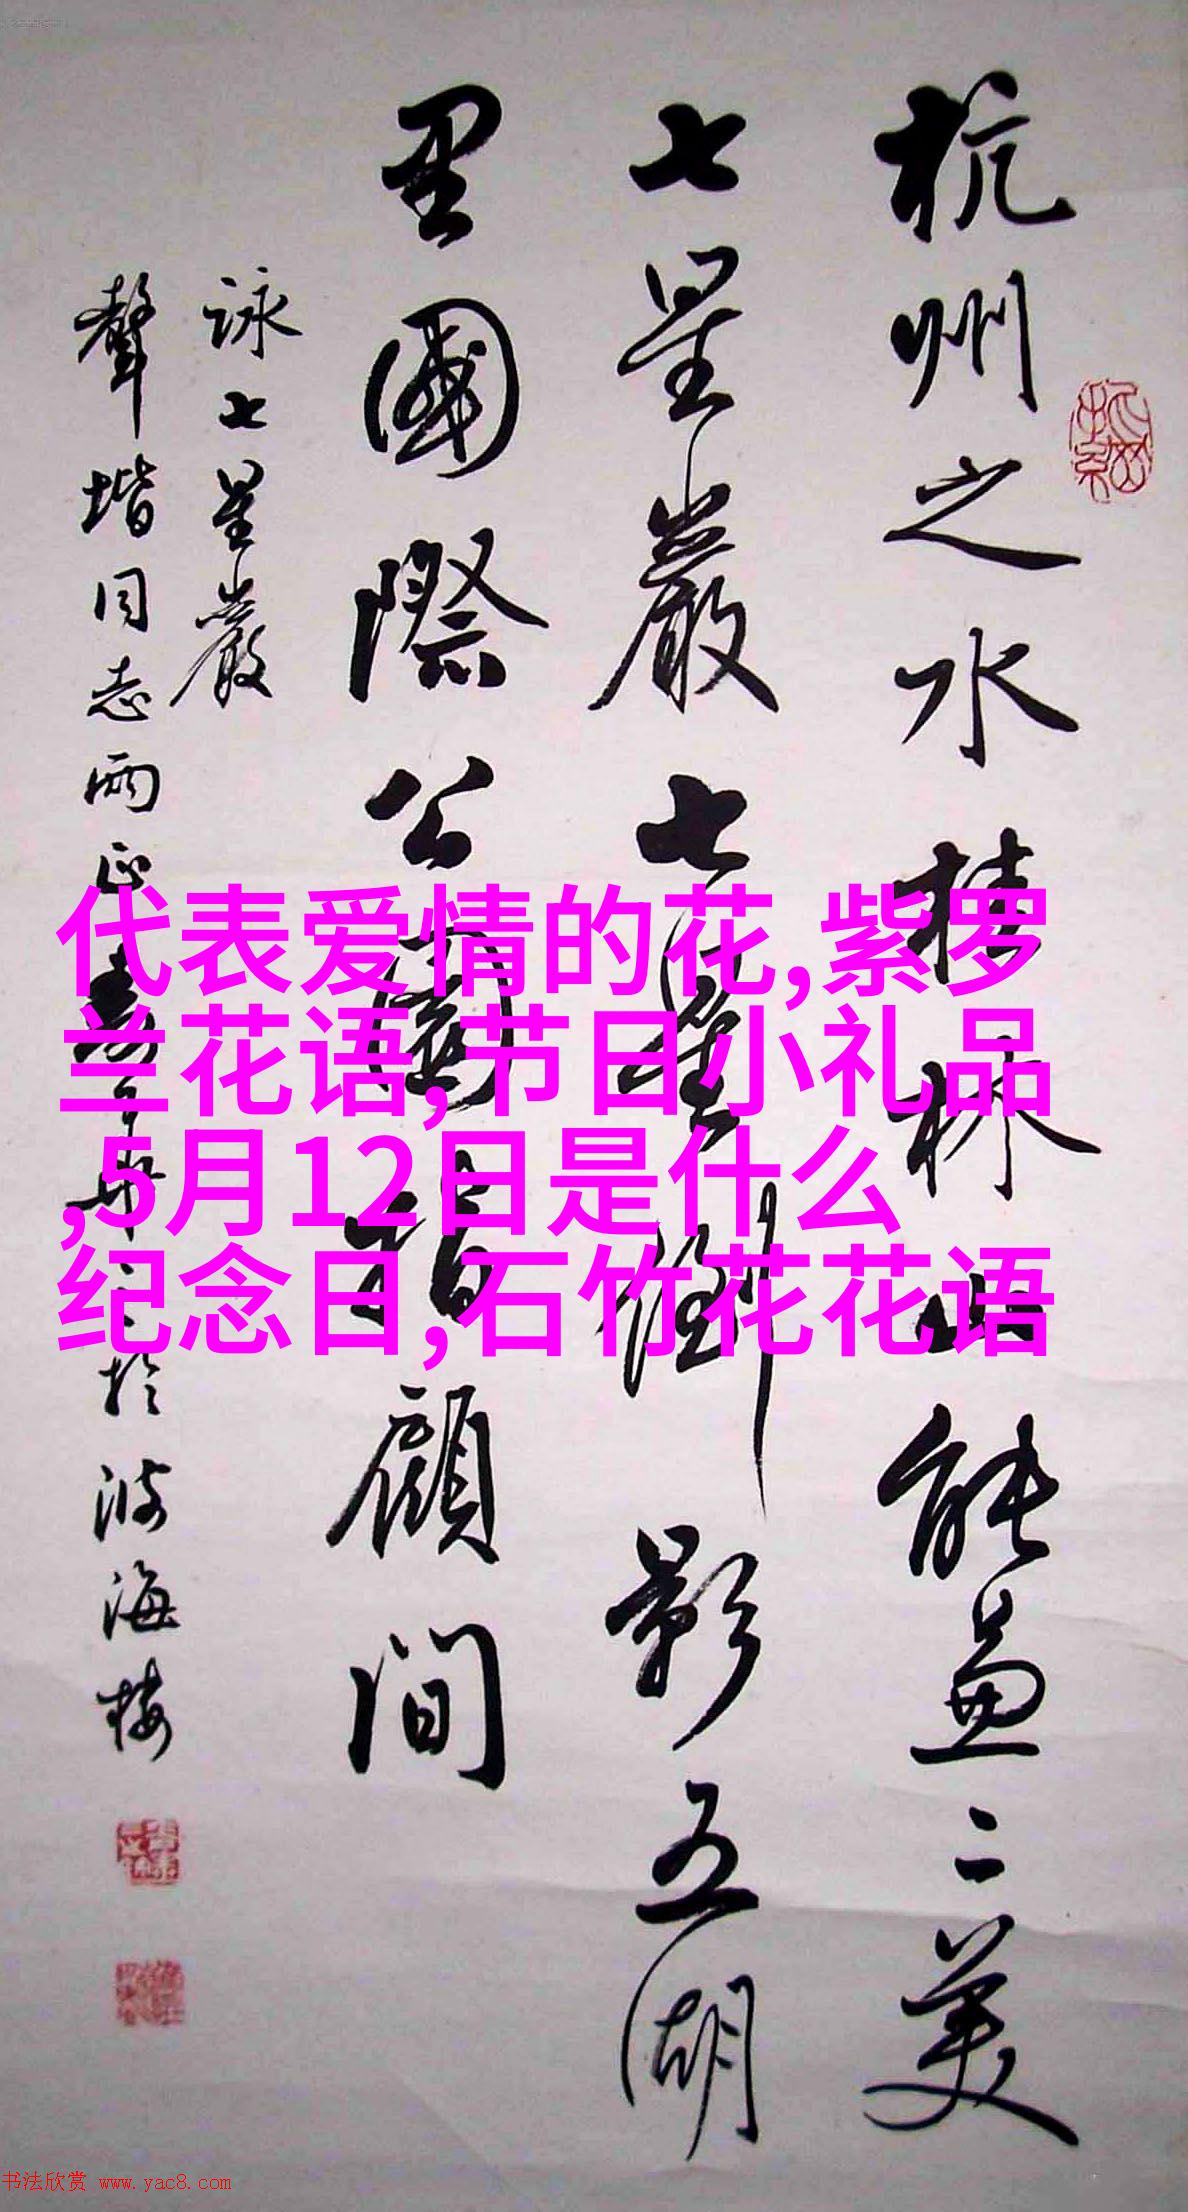 杭州之水桂林山能兼二美
七星巖七星巖影五湖
里國際公園指顧間
詠七星巖
聲堦同志兩正
於波海樓
代表爱情的花,紫罗
兰花语,节日小礼品
,5月12日是什么
纪念日,石竹花花语
书法欣赏 www.yac8.com